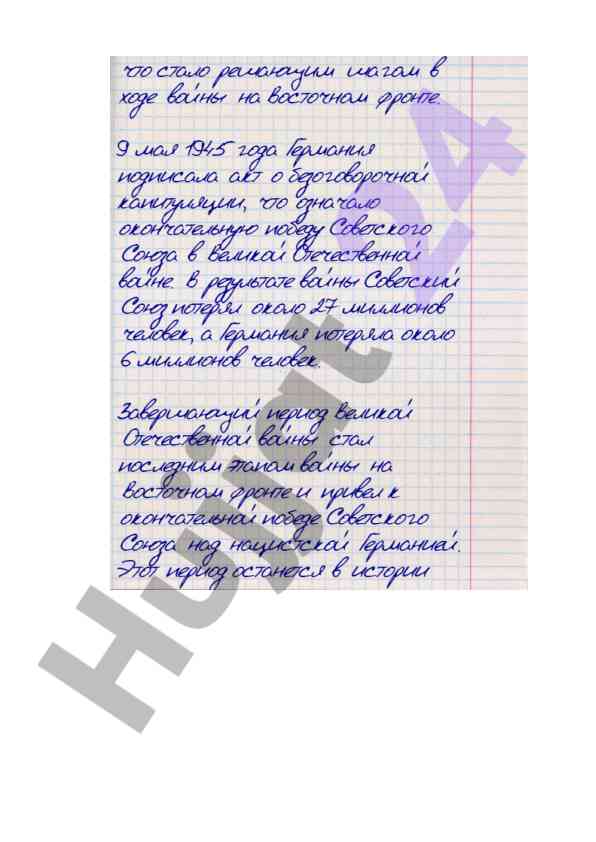 что стало решающим шагом в
ходе войны на Восточном фронте.
9 мая 1945 года Германия
подписала акт о безоговорочной
капитуляции, что означало
окончательную победу Советского
Союза в Великой Отечественной
войне. В результате войны Советский
Союз потерял около 27 миллионов
человек, а Германия потеряла около
6 миллионов человек.
Завершающий период Великой
Отечественной войны стал
последним этапом войны на
Восточном фронте и привел к
окончательной победе Советского
Союза над нацистской Германией.
Этот период останется в истории
Hujjat 24